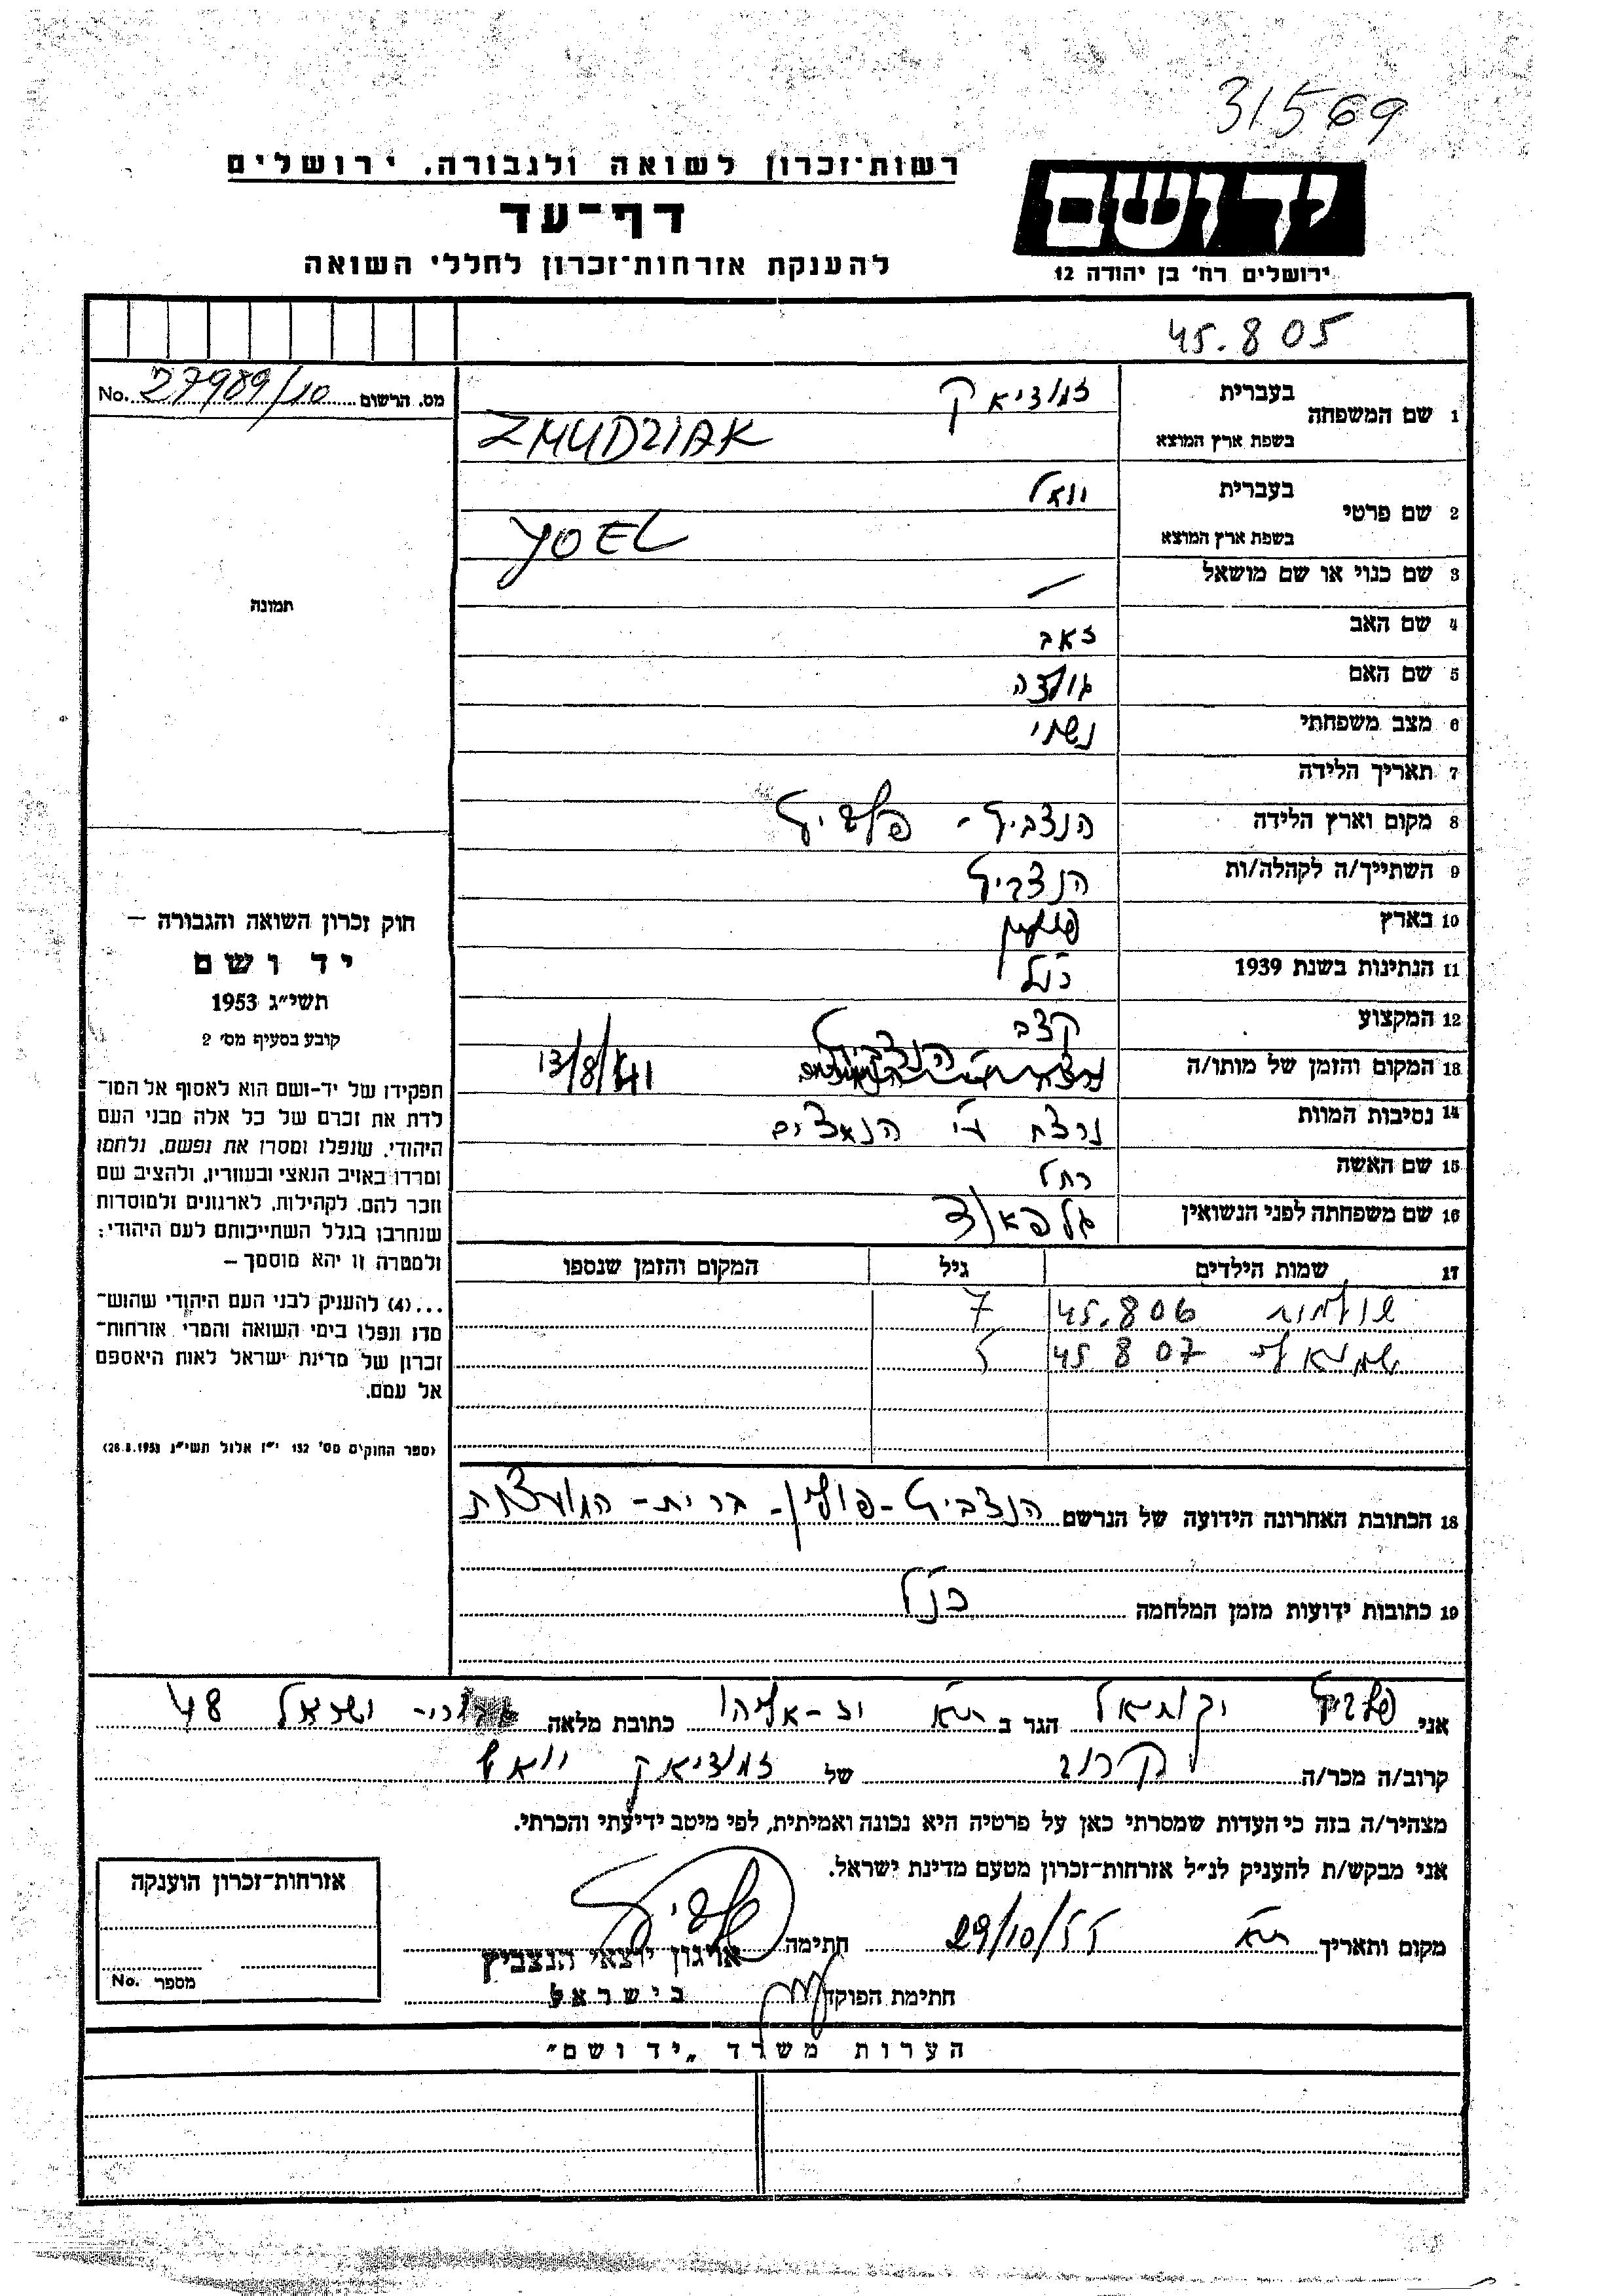 31569
רשות־זכרון לשואה ולגבורה, ירושלים
דף־עד
להענקת אזרחות־זכרון לחללי השואה
יד ושם
ירושלים רח' בן יהודה 12
45.805
No. 27989/10 מס. הרשום
1 שם המשפחה בעברית זמודזיאק
בשפת ארץ המוצא ZMUDZIAK
2 שם פרטי בעברית יואל
בשפת ארץ המוצא YOEL
3 שם כנוי או שם מושאל —
4 שם האב זאב
5 שם האם
6 מצב משפחתי נשוי
7 תאריך הלידה
8 מקום וארץ הלידה הנצביץ -
9 השתייך/ה לקהלה/ות הנצביץ
10 בארץ פולין
11 הנתינות בשנת 1939 כנ"ל
12 המקצוע קצב
13 המקום והזמן של מותו/ה הנצביץ 13/8/41
14 נסיבות המוות נרצח ע"י הנאצים
15 שם האשה רחל
16 שם משפחתה לפני הנשואין
17 שמות הילדים גיל המקום והזמן שנספו
שולמית 45.806 7
45807 5
18 הכתובת האחרונה הידועה של הנרשם הנצביץ - פולין - ברית - המועצות
19 כתובות ידועות מזמן המלחמה כנ"ל
תמונה
חוק זכרון השואה והגבורה —
יד ושם
תשי"ג 1953
קובע בסעיף מס' 2
תפקידו של יד-ושם הוא לאסוף אל המו־
לדת את זכרם של כל אלה מבני העם
היהודי, שנפלו ומסרו את נפשם, נלחמו
ומרדו באויב הנאצי ובעוזריו, ולהציב שם
וזכר להם, לקהילות, לארגונים ולמוסדות
שנחרבו בגלל השתייכותם לעם היהודי;
ולמטרה זו יהא מוסמך —
...(4) להעניק לבני העם היהודי שהוש־
מדו ונפלו בימי השואה והמרי אזרחות־
זכרון של מדינת ישראל לאות היאספם
אל עמם.
(ספר החוקים מס' 132 י"ז אלול תשי"ג 28.8.1953)
אני יקותיאל הגר ב ת"א יד-אליהו כתובת מלאה ישראל 48
קרוב/ה מכר/ה קרוב של זמודזיאק יואל
מצהיר/ה בזה כי העדות שמסרתי כאן על פרטיה היא נכונה ואמיתית, לפי מיטב ידיעתי והכרתי.
אני מבקש/ת להעניק לנ"ל אזרחות-זכרון מטעם מדינת ישראל.
מקום ותאריך ת"א 29/10/55 חתימה
ארגון יוצאי הנצביץ
חתימת הפוקד בישראל
אזרחות-זכרון הוענקה
מספר No.
הערות משרד „יד ושם"